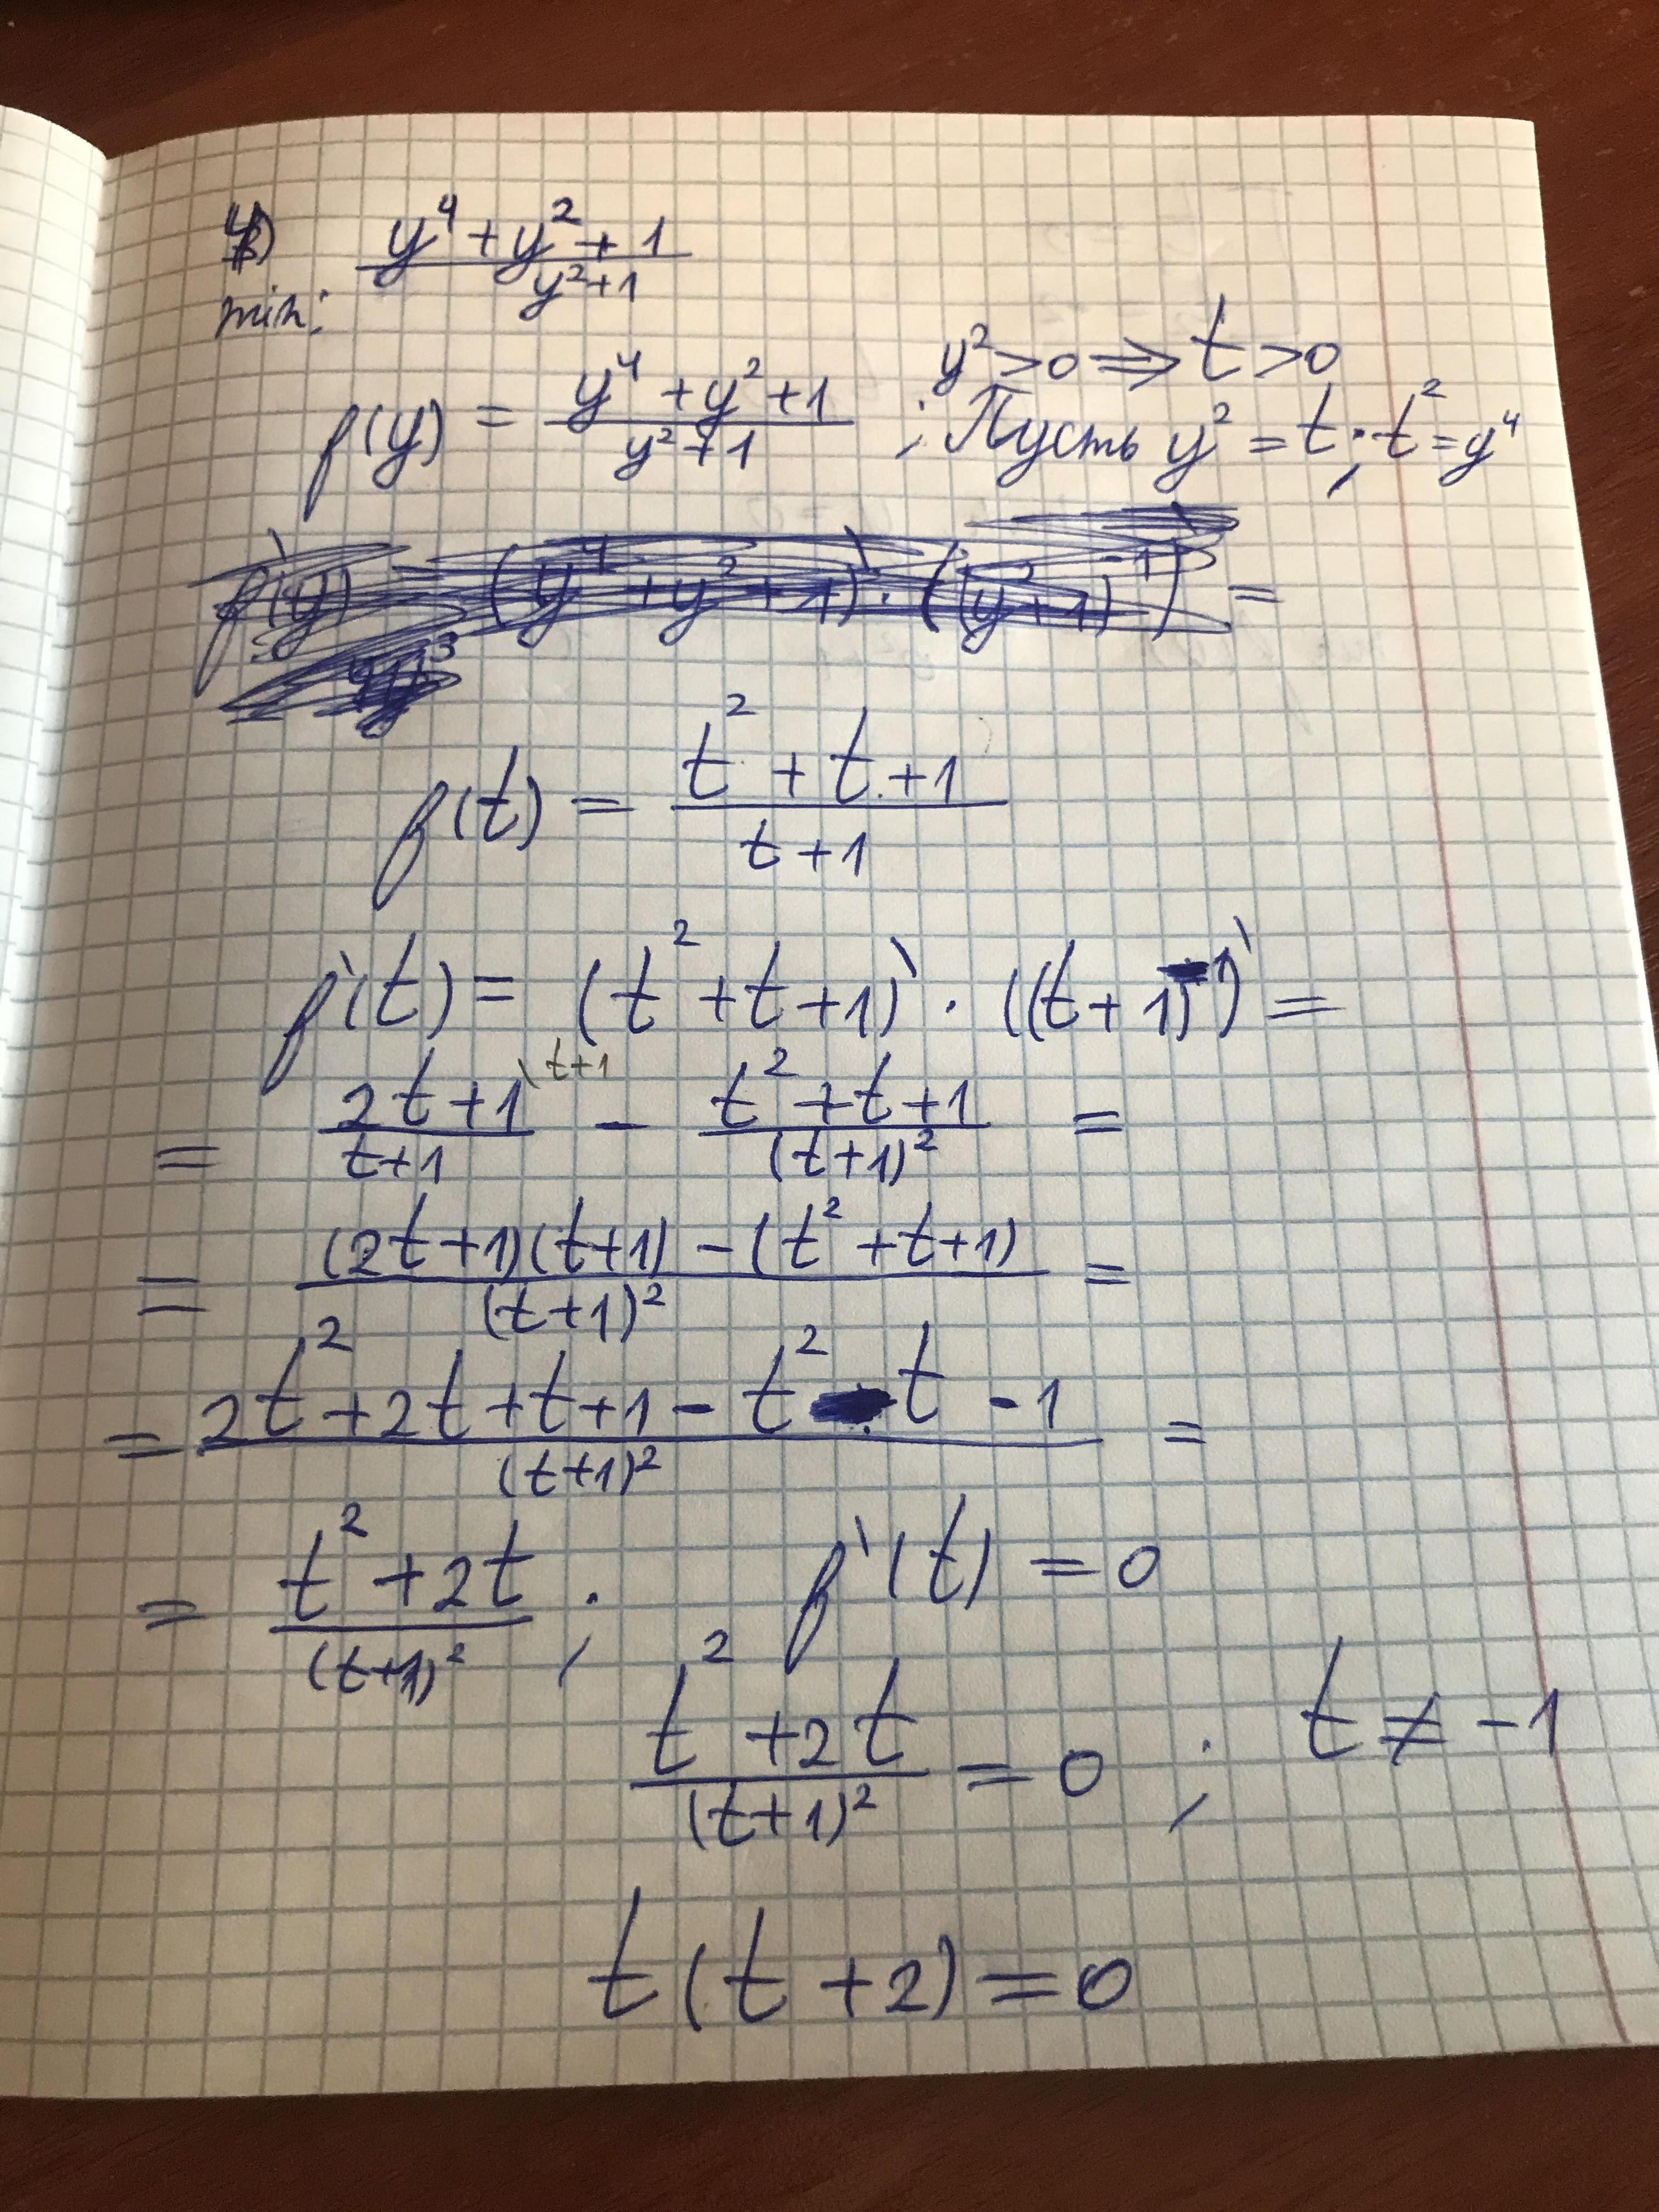 4) (y⁴ + y² + 1)/(y² + 1)
min:
y² > 0 ⇒ t > 0
f(y) = (y⁴ + y² + 1)/(y² + 1) ; Пусть y² = t ; t² = y⁴
f`(y) = (y⁴ + y² + 1)` · ((y² + 1)⁻¹)` =
f(t) = (t² + t + 1)/(t + 1)
f`(t) = (t² + t + 1)` · ((t + 1)⁻¹)` =
= (2t + 1)/(t + 1) ` t+1 − (t² + t + 1)/(t + 1)² =
= ((2t + 1)(t + 1) − (t² + t + 1))/(t + 1)² =
= (2t² + 2t + t + 1 − t² − t − 1)/(t + 1)² =
= (t² + 2t)/(t + 1)² ; f`(t) = 0
(t² + 2t)/(t + 1)² = 0 ; t ≠ −1
t(t + 2) = 0